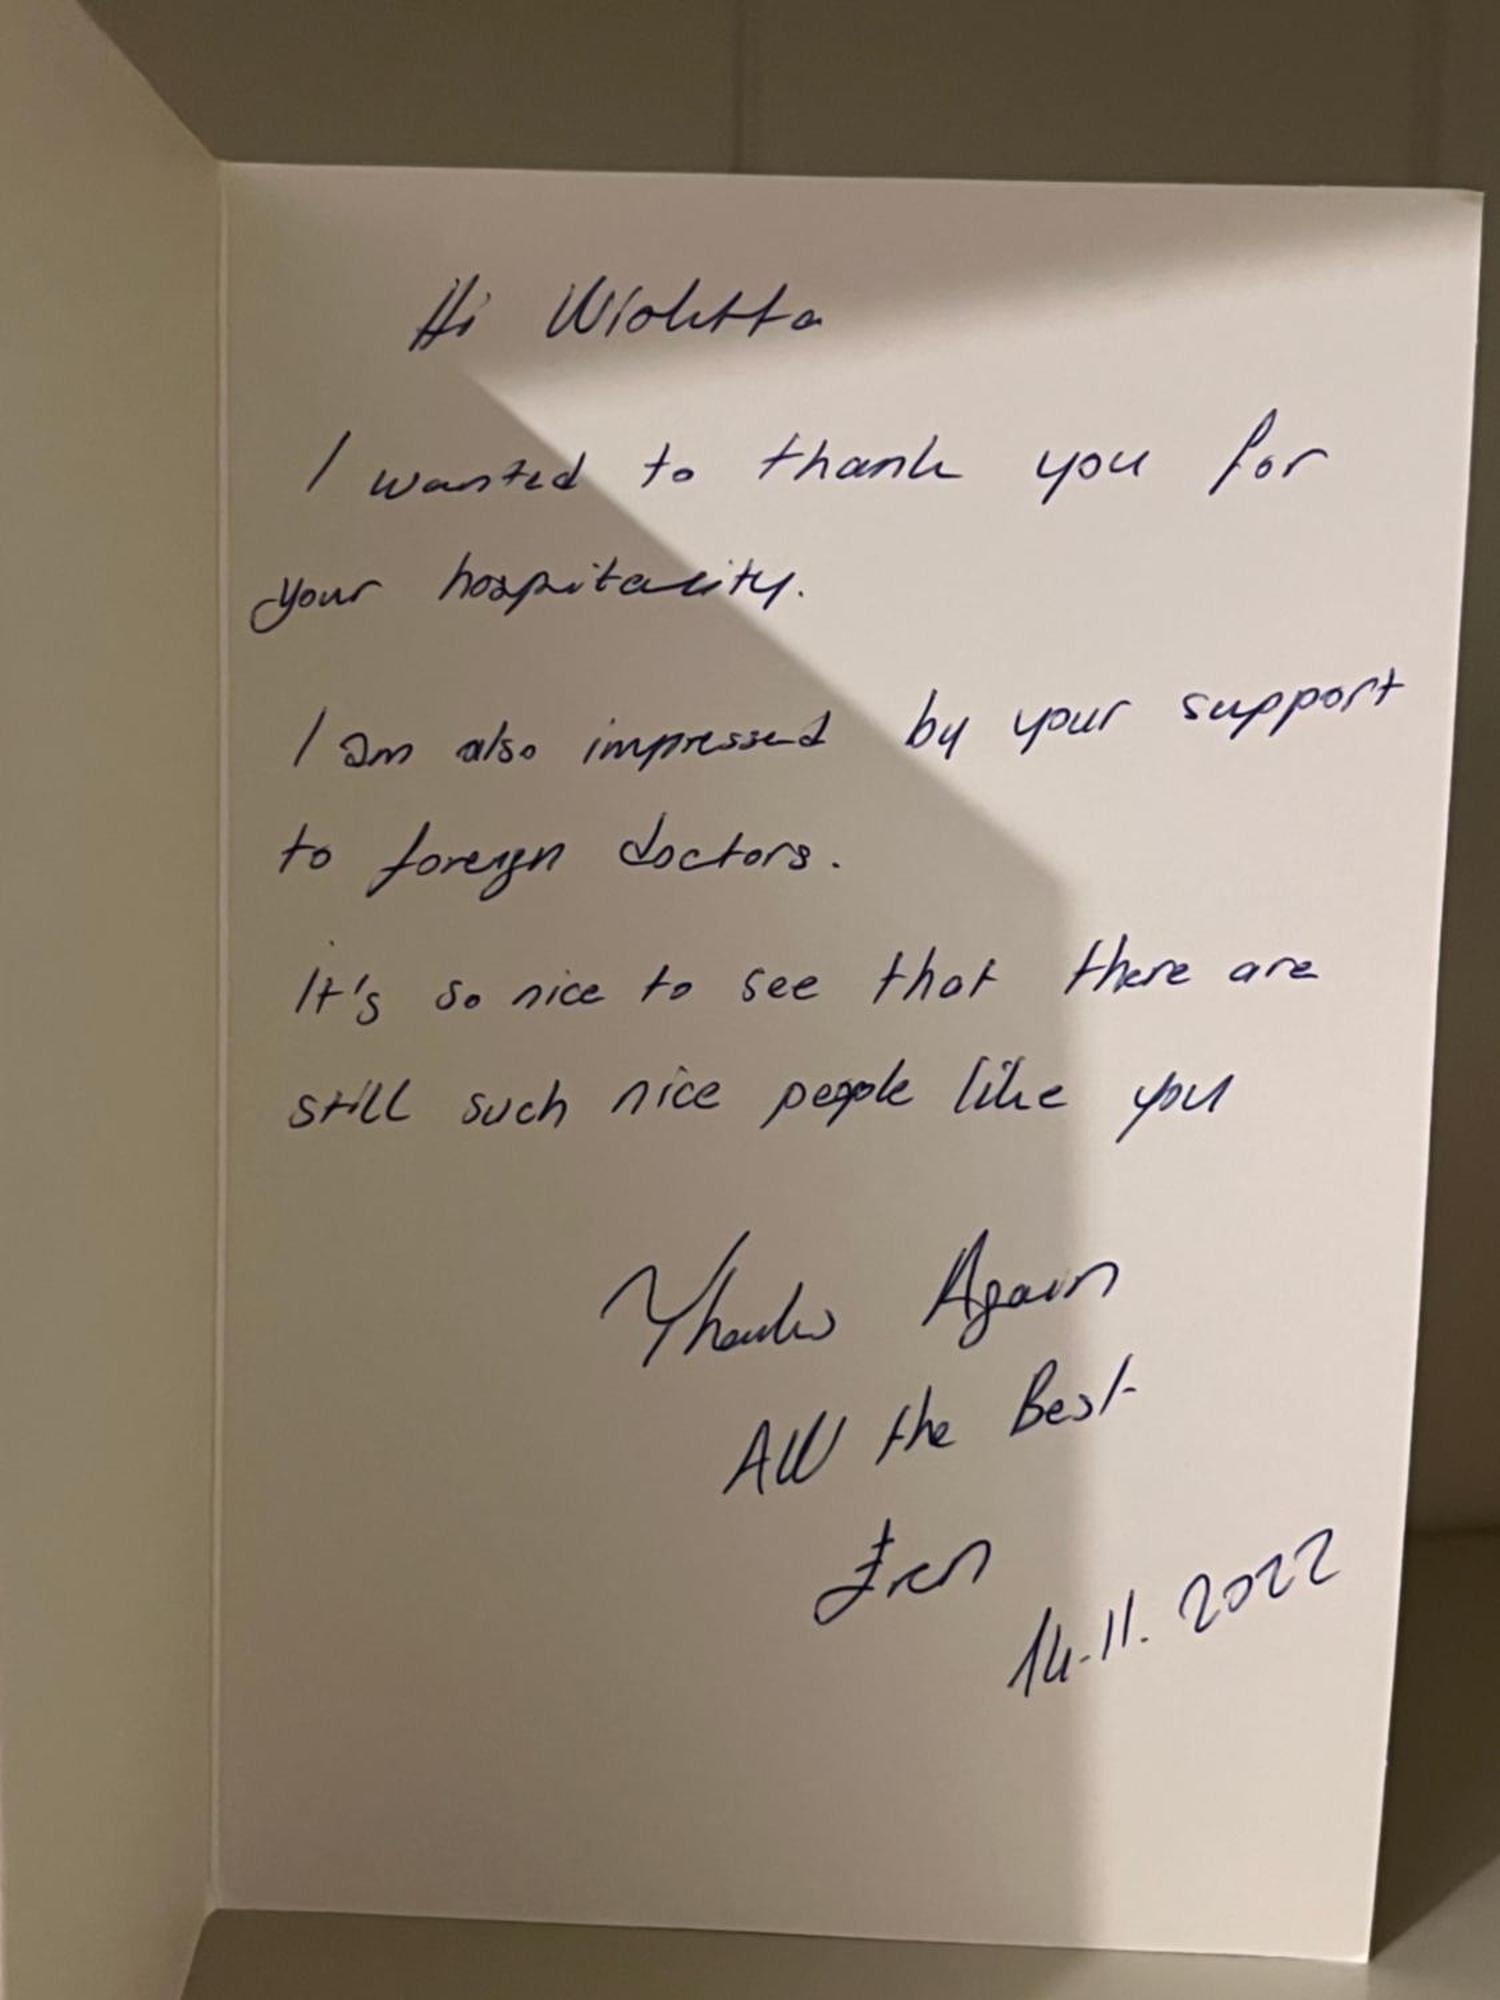 Hi Wioletta
I wanted to thank you for
your hospitality.
I am also impressed by your support
to foreign doctors.
It's so nice to see that there are
still such nice people like you
Thanks Again
All the Best
Eren
14.11.2022